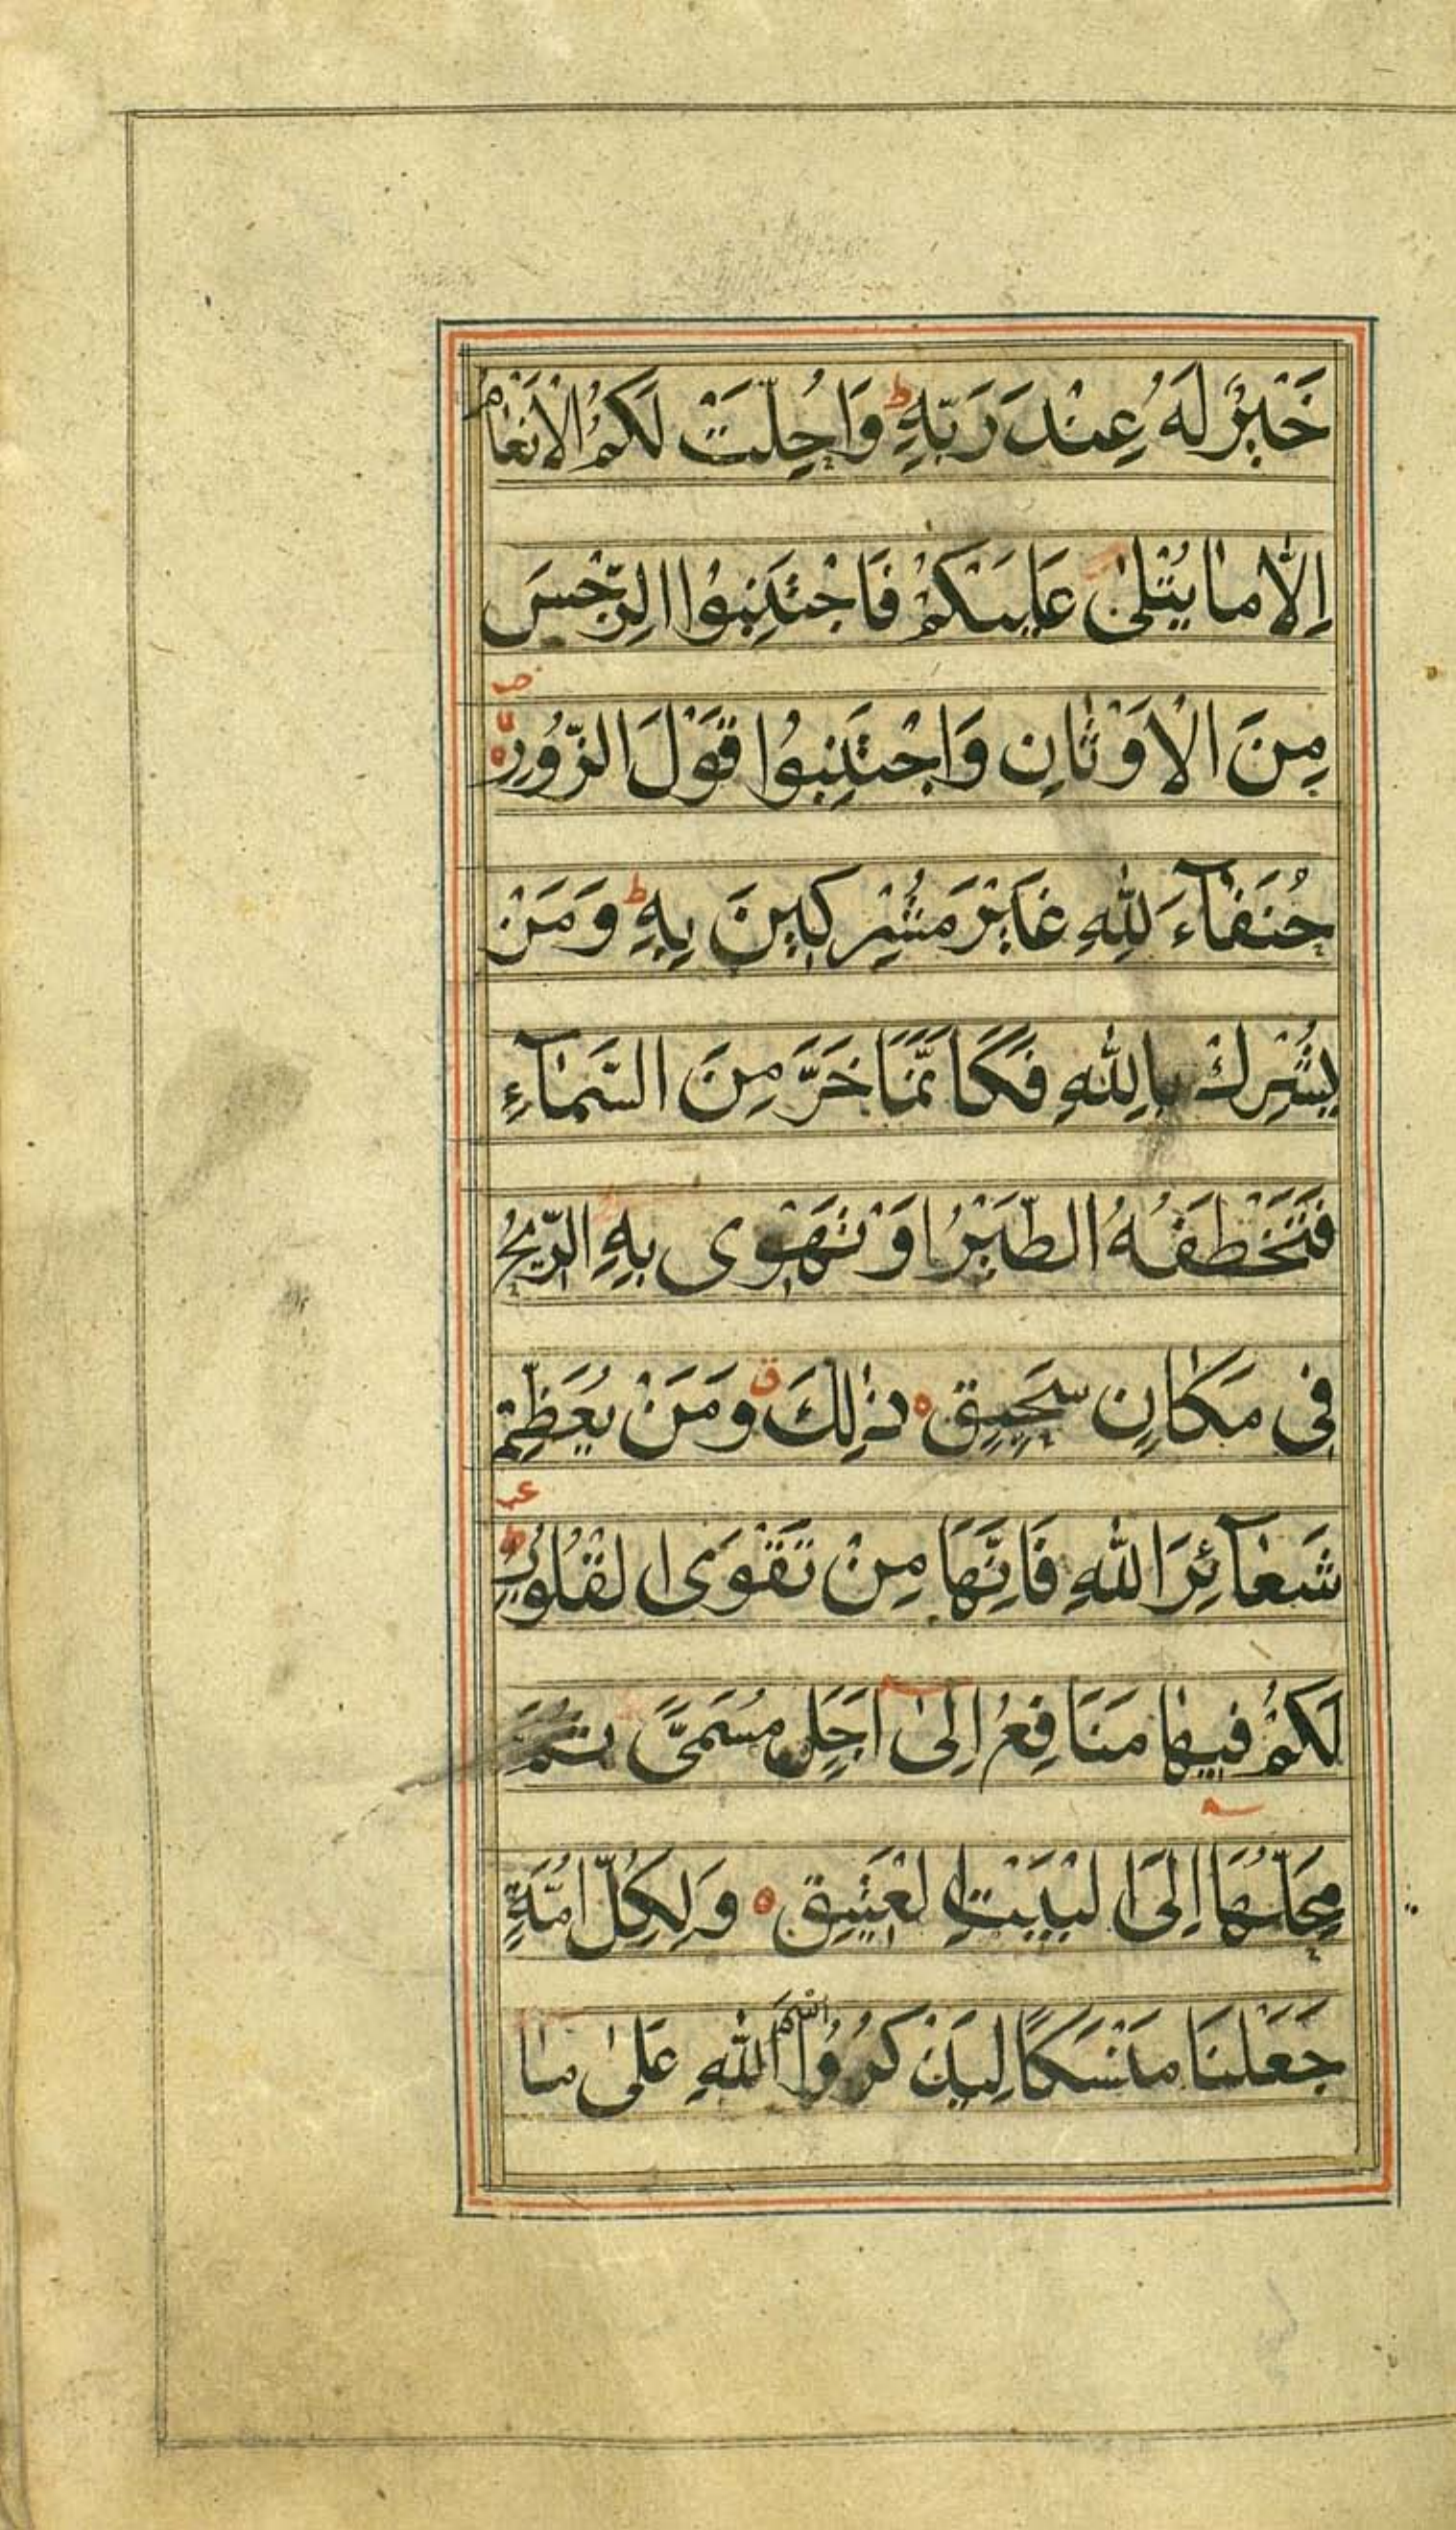 خَيْرٌ لَهُ عِنْدَ رَبِّهِ ط وَاُحِلَّتْ لَكُمُ الْاَنْعَامُ
اِلَّا مَا يُتْلٰى عَلَيْكُمْ فَاجْتَنِبُوا الرِّجْسَ
مِنَ الْاَوْثَانِ وَاجْتَنِبُوا قَوْلَ الزُّورِ
حُنَفَآءَ لِلّٰهِ غَيْرَ مُشْرِكِينَ بِهِ ط وَمَنْ
يُشْرِكْ بِاللّٰهِ فَكَاَنَّمَا خَرَّ مِنَ السَّمَآءِ
فَتَخْطَفُهُ الطَّيْرُ اَوْ تَهْوِى بِهِ الرِّيحُ
فِى مَكَانٍ سَحِيقٍ ه ذٰلِكَ ق وَمَنْ يُعَظِّمْ
شَعَآئِرَ اللّٰهِ فَاِنَّهَا مِنْ تَقْوَى الْقُلُوبِ
لَكُمْ فِيهَا مَنَافِعُ اِلٰى اَجَلٍ مُسَمًّى ثُمَّ
مَحِلُّهَا اِلَى الْبَيْتِ الْعَتِيقِ ه وَلِكُلِّ اُمَّةٍ
جَعَلْنَا مَنْسَكًا لِيَذْكُرُوا اسْمَ اللّٰهِ عَلٰى مَا